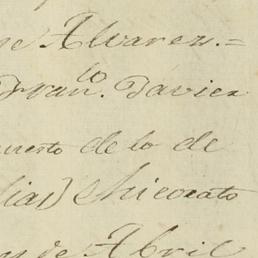 e Alvarez.=
Fran.co Davier
uesto de lo de
lias) shicorato
de Abril